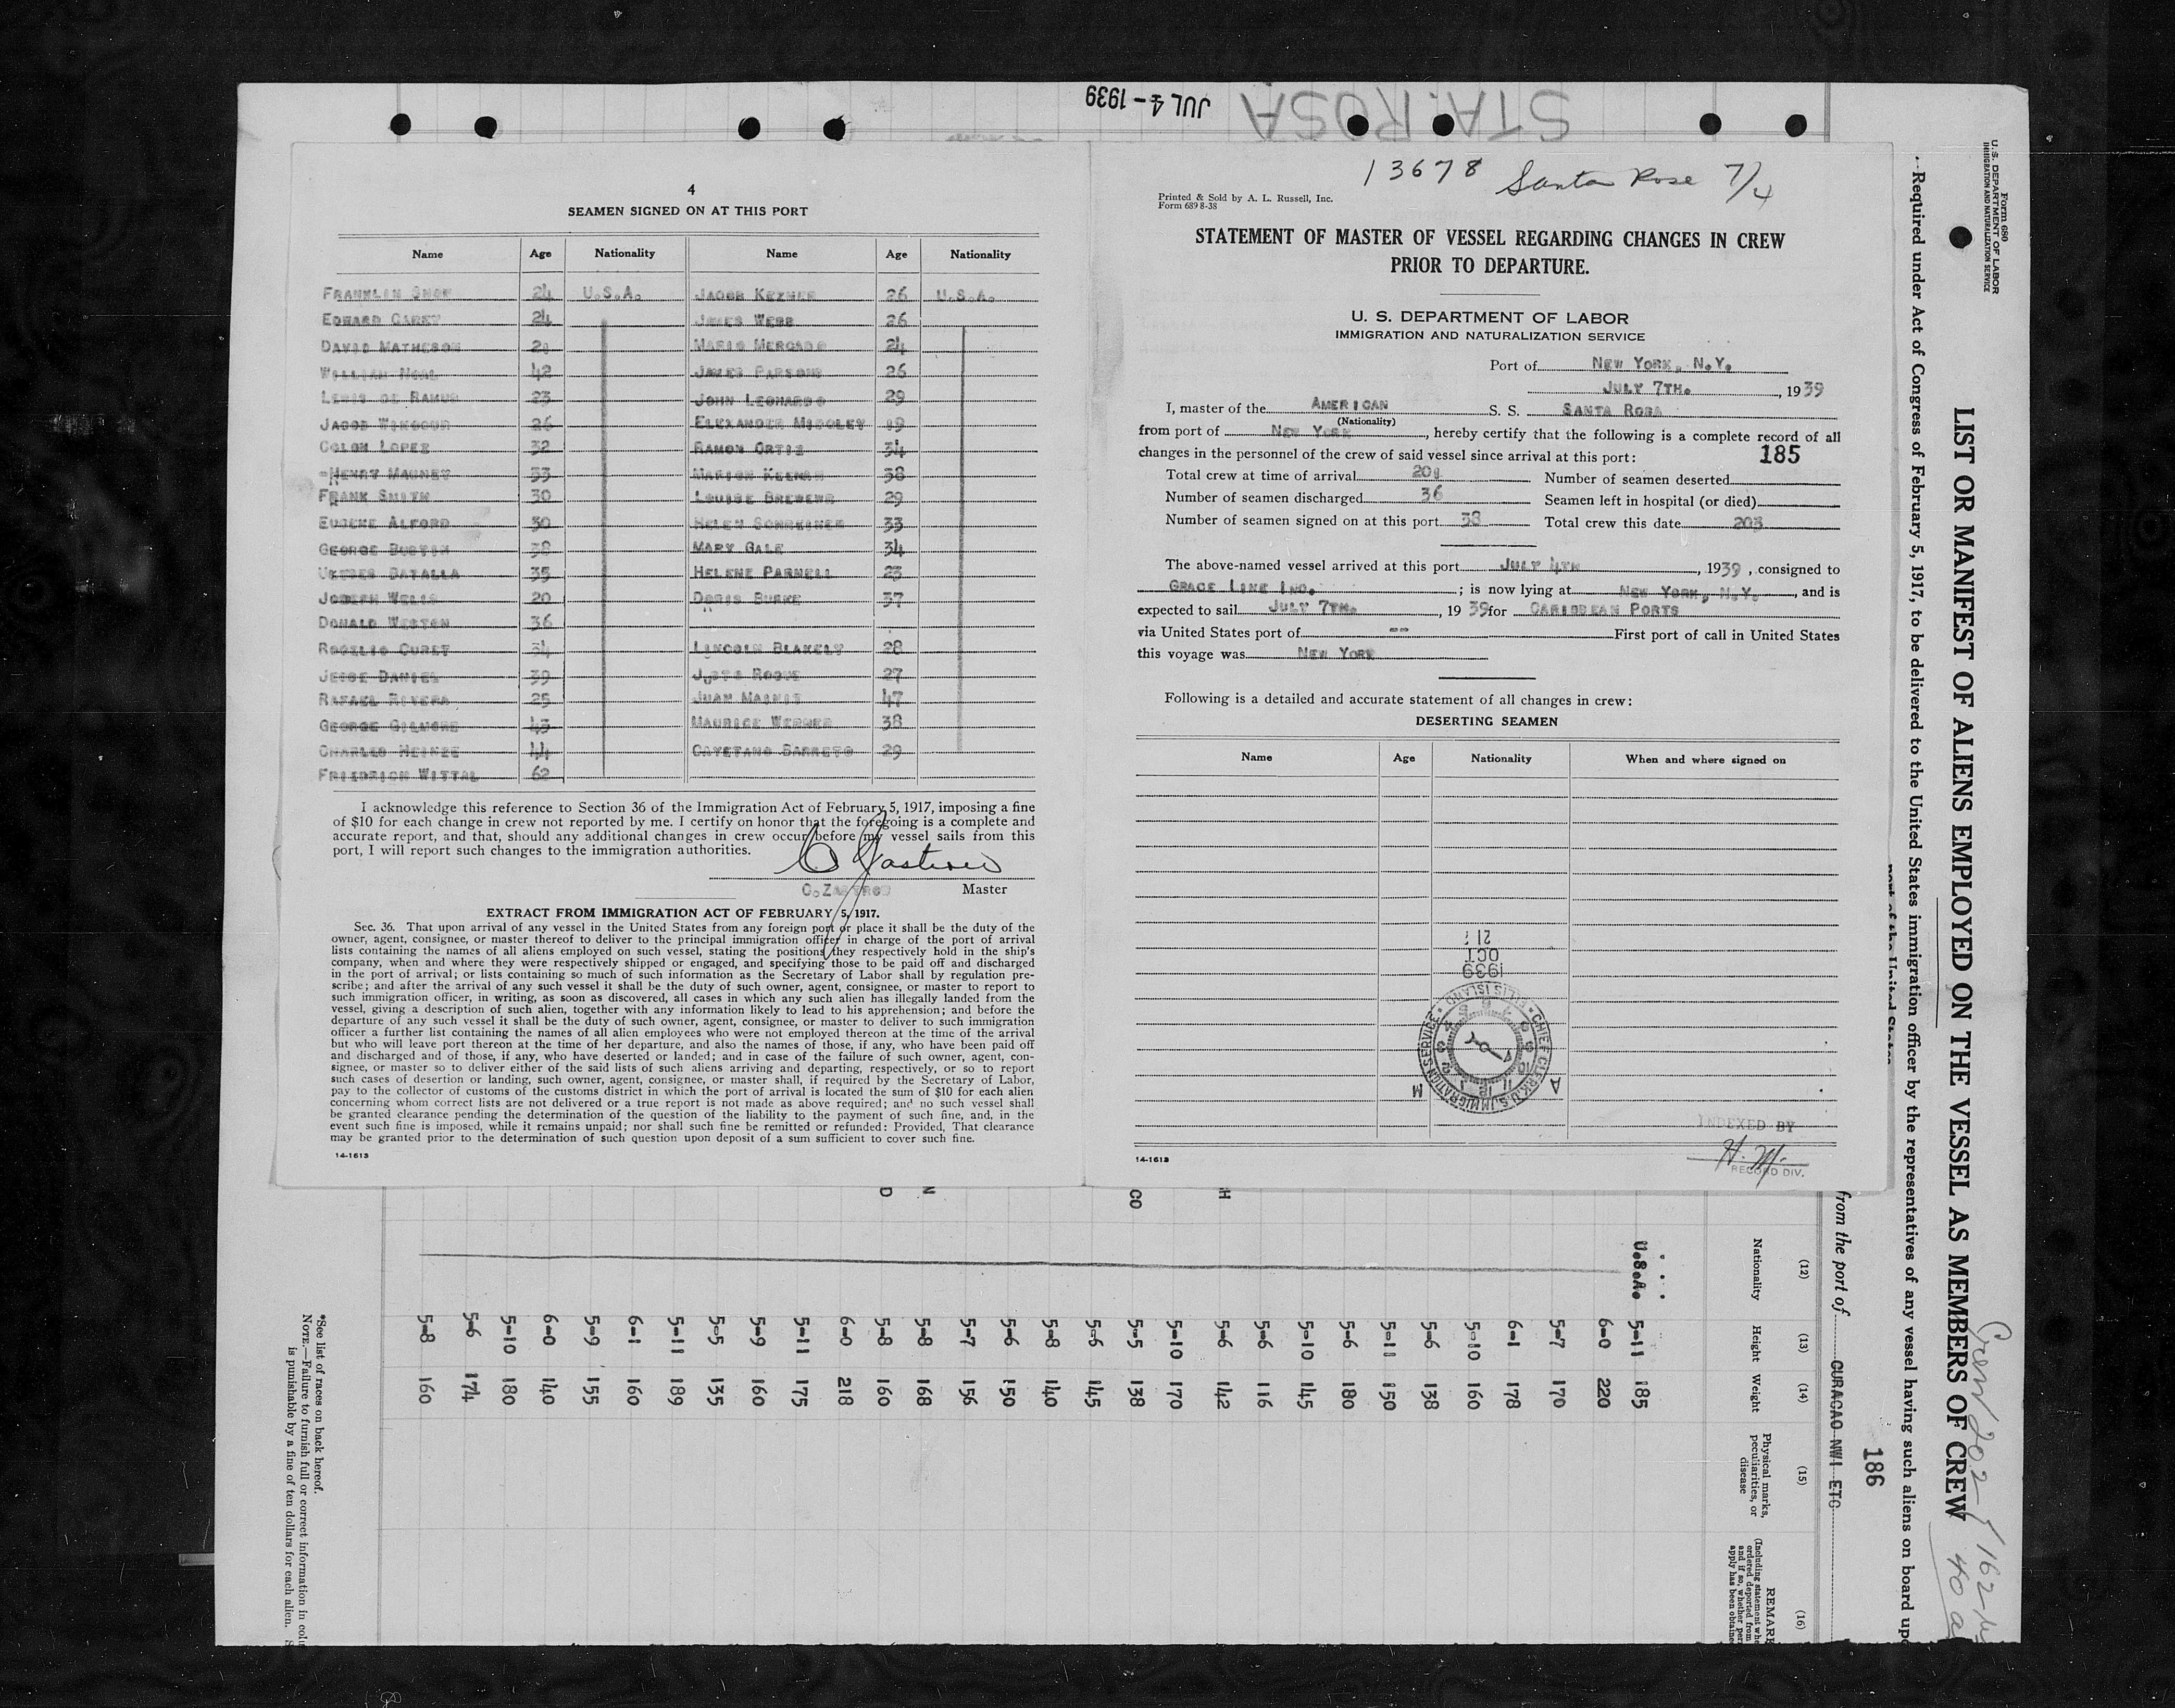 JUL 4 - 1939
STA. ROSA
4
SEAMEN SIGNED ON AT THIS PORT
Name Age Nationality Name Age Nationality
FRANKLIN SNOW 24 U.S.A. JACOB KEZNER 26 U.S.A.
EDWARD CAREY 24 JAMES WEBB 26
DAVID MATHESON MARIO MERCADO 24
WILLIAM 42 JAMES PARSONS 26
LEWIS DE RAMUS 23 JOHN LEONARDO 29
JACOB 26 ELEXANDER MIDGLEY 19
COLON LOPEZ 32 RAMON ORTIZ 34
HENRY MAGNEY 33 MARION KEENAN 38
FRANK SMITH 30 LOUISE BREWEWR 29
EUGENE ALFORD 30 HELEN SCHREINER 33
GEORGE BUSTIN 38 MARY GALE 34
BATALLA 35 HELENE PARNELL 23
JOSEPH WELIS 20 DORIS BURKE 37
DONALD WESTEN 36
ROGELIO CURET 34 LINCOLN BLAKELY 28
JESSE DANIEL 39 JUSTO ROQUE 27
RAFAEL RIVERA 25 JUAN 47
GEORGE GILMORE 43 MAURICE WERNER 38
CHARLES HEINZE 44 CAYETANO BARRETO 29
FRIEDRICH WITTAL 62
I acknowledge this reference to Section 36 of the Immigration Act of February 5, 1917, imposing a fine
of $10 for each change in crew not reported by me. I certify on honor that the foregoing is a complete and
accurate report, and that, should any additional changes in crew occur before my vessel sails from this
port, I will report such changes to the immigration authorities.
O. ZASTROW Master
EXTRACT FROM IMMIGRATION ACT OF FEBRUARY 5, 1917.
Sec. 36. That upon arrival of any vessel in the United States from any foreign port or place it shall be the duty of the
owner, agent, consignee, or master thereof to deliver to the principal immigration officer in charge of the port of arrival
lists containing the names of all aliens employed on such vessel, stating the positions they respectively hold in the ship's
company, when and where they were respectively shipped or engaged, and specifying those to be paid off and discharged
in the port of arrival; or lists containing so much of such information as the Secretary of Labor shall by regulation pre-
scribe; and after the arrival of any such vessel it shall be the duty of such owner, agent, consignee, or master to report to
such immigration officer, in writing, as soon as discovered, all cases in which any such alien has illegally landed from the
vessel, giving a description of such alien, together with any information likely to lead to his apprehension; and before the
departure of any such vessel it shall be the duty of such owner, agent, consignee, or master to deliver to such immigration
officer a further list containing the names of all alien employees who were not employed thereon at the time of the arrival
but who will leave port thereon at the time of her departure, and also the names of those, if any, who have been paid off
and discharged and of those, if any, who have deserted or landed; and in case of the failure of such owner, agent, con-
signee, or master so to deliver either of the said lists of such aliens arriving and departing, respectively, or so to report
such cases of desertion or landing, such owner, agent, consignee, or master shall, if required by the Secretary of Labor,
pay to the collector of customs of the customs district in which the port of arrival is located the sum of $10 for each alien
concerning whom correct lists are not delivered or a true report is not made as above required; and no such vessel shall
be granted clearance pending the determination of the question of the liability to the payment of such fine, and, in the
event such fine is imposed, while it remains unpaid; nor shall such fine be remitted or refunded: Provided, That clearance
may be granted prior to the determination of such question upon deposit of a sum sufficient to cover such fine.
14-1613
13678 Santa Rose 7/4
Printed & Sold by A. L. Russell, Inc.
Form 689 8-38
STATEMENT OF MASTER OF VESSEL REGARDING CHANGES IN CREW
PRIOR TO DEPARTURE.
U. S. DEPARTMENT OF LABOR
IMMIGRATION AND NATURALIZATION SERVICE
Port of NEW YORK, N.Y.
JULY 7TH. , 1939
I, master of the AMERICAN S. S. SANTA ROSA
(Nationality)
from port of NEW YORK , hereby certify that the following is a complete record of all
changes in the personnel of the crew of said vessel since arrival at this port: 185
Total crew at time of arrival 201 Number of seamen deserted
Number of seamen discharged 36 Seamen left in hospital (or died)
Number of seamen signed on at this port 38 Total crew this date 203
The above-named vessel arrived at this port JULY 4TH , 1939 , consigned to
GRACE LINE INC. ; is now lying at NEW YORK, N.Y. , and is
expected to sail JULY 7TH. , 19 39 for CARIBBEAN PORTS
via United States port of -- First port of call in United States
this voyage was NEW YORK
Following is a detailed and accurate statement of all changes in crew:
DESERTING SEAMEN
Name Age Nationality When and where signed on
21
OCT
1939
CHIEF CLERK, U.S. IMMIGRATION SERVICE • ELLIS ISLAND
A M
INDEXED BY
H. M.
RECORD DIV.
14-1613
Form 680
U. S. DEPARTMENT OF LABOR
IMMIGRATION AND NATURALIZATION SERVICE
LIST OR MANIFEST OF ALIENS EMPLOYED ON THE VESSEL AS MEMBERS OF CREW
Crew 202
40
Required under Act of Congress of February 5, 1917, to be delivered to the United States immigration officer by the representatives of any vessel having such aliens on board upo
port of the United States
186
from the port of CURACAO NWI ETC
(12) (13) (14) (15) (16)
Nationality Height Weight Physical marks, peculiarities, or disease REMARK
(Including statement whe
ordered deported from
and if so, whether per
apply has been obtaine
U.S.A. 5-11 185
6-0 220
5-7 170
6-1 178
5-10 160
5-6 138
5-11 150
5-6 180
5-10 145
5-6 116
5-6 142
5-10 170
5-5 138
5-6 145
5-8 140
5-6 150
5-7 156
5-8 168
5-8 160
6-0 218
5-11 175
5-9 160
5-5 135
5-11 189
6-1 160
5-9 155
6-0 140
5-10 180
5-6 174
5-8 160
*See list of races on back hereof.
NOTE.—Failure to furnish full or correct information in colu
is punishable by a fine of ten dollars for each alien. S